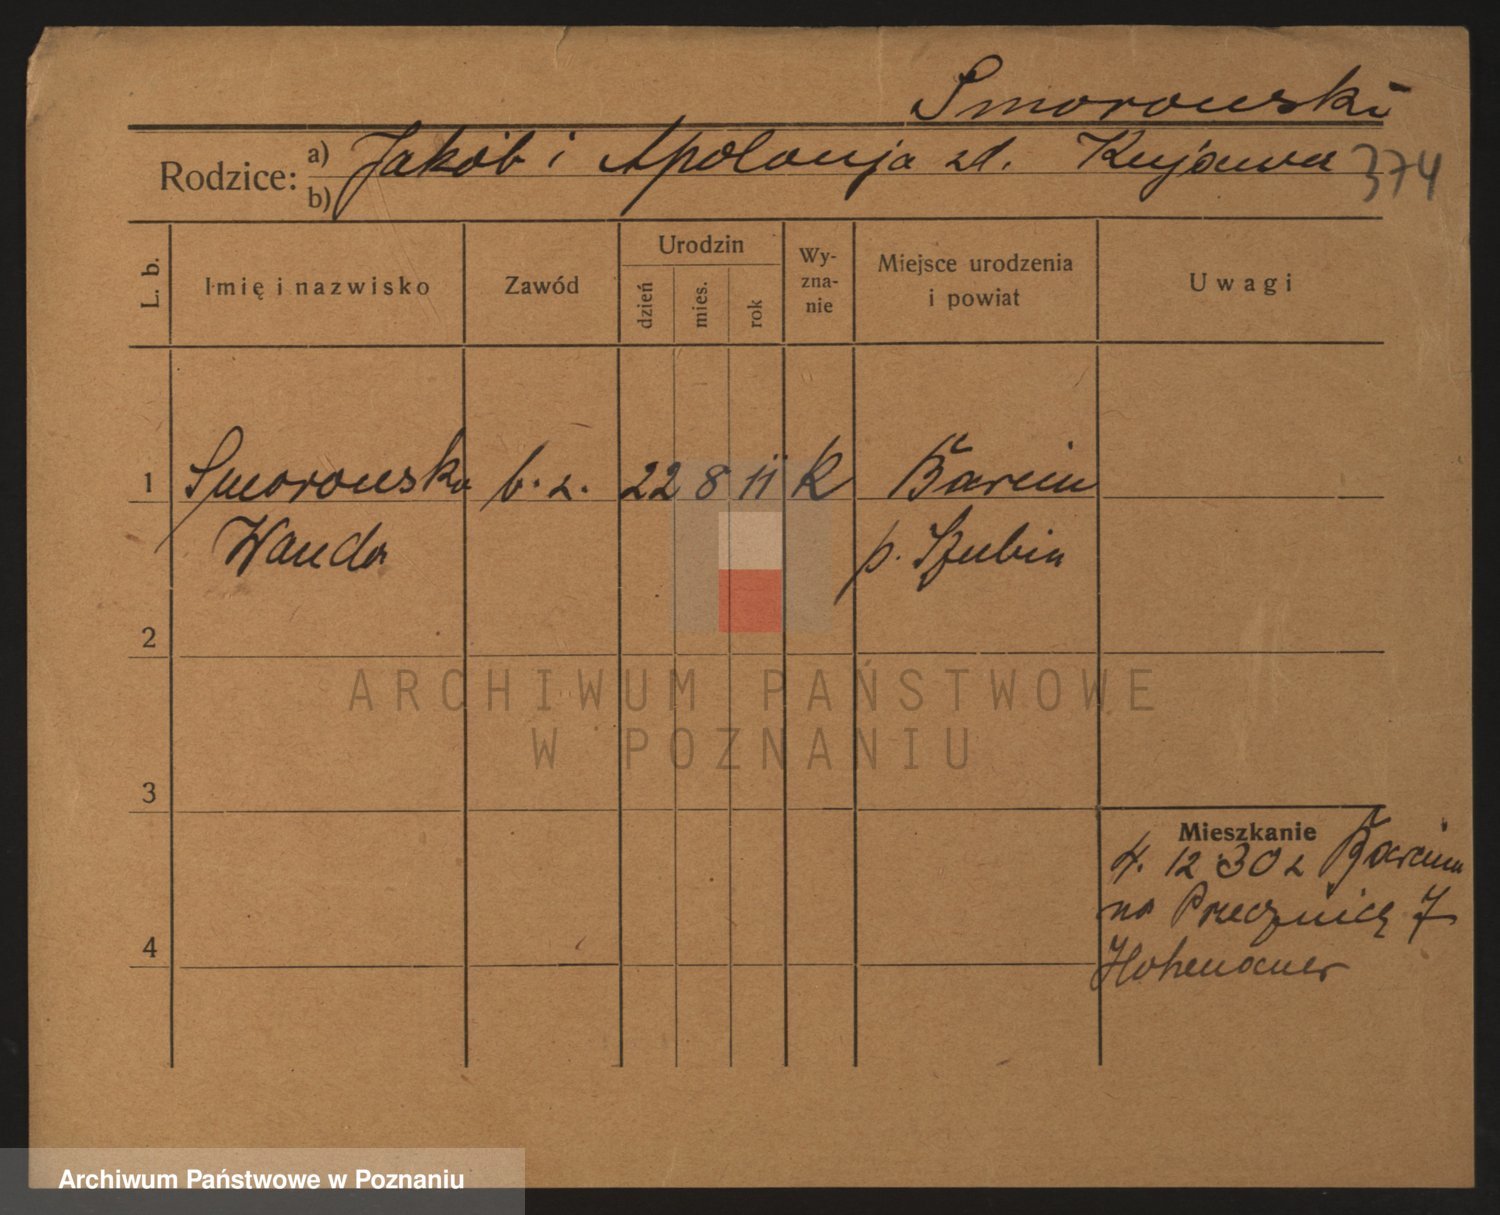 Smorowski
Rodzice: a) Jakób i Apolonja zd. Kujawa 374
b)
L. b.
Imię i nazwisko
Zawód
Urodzin
dzień
mies.
rok
Wy-
zna-
nie
Miejsce urodzenia
i powiat
Uwagi
1 Smorowska b. z. 22 8 11 k Barcin
Wanda p. Szubin
2
ARCHIWUM PAŃSTWOWE
W POZNANIU
3
Mieszkanie
4. 12 30 z Barcina
na Przecznicę 7
4
Archiwum Państwowe w Poznaniu